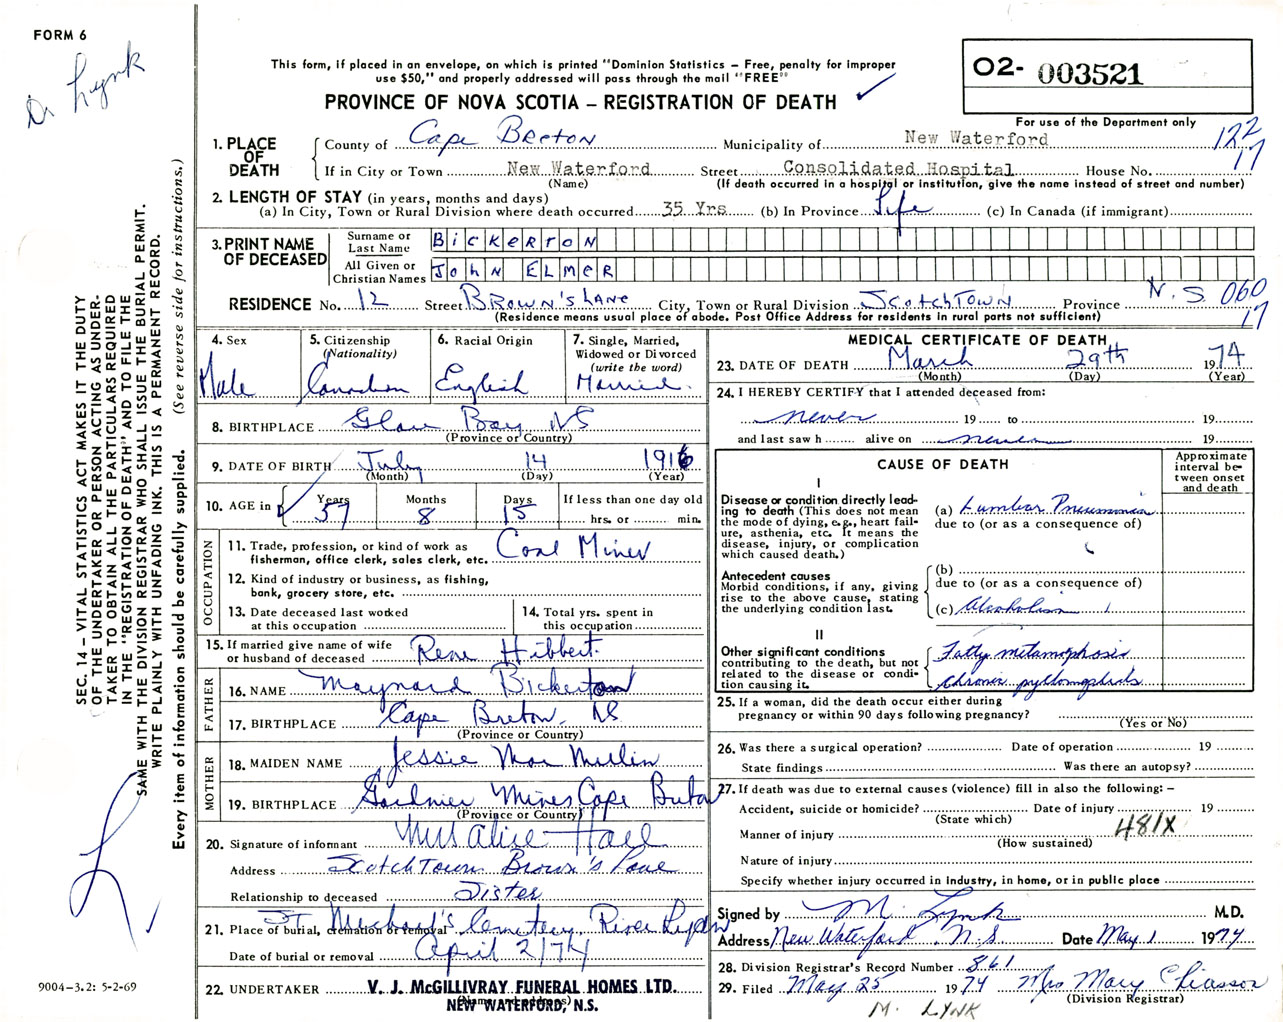 FORM 6
Dr Lynk
This form, if placed in an envelope, on which is printed "Dominion Statistics – Free, penalty for improper
use $50," and properly addressed will pass through the mail "FREE"
PROVINCE OF NOVA SCOTIA – REGISTRATION OF DEATH ✓
O2- 003521
For use of the Department only
122
17
1. PLACE OF DEATH
County of Cape Breton Municipality of New Waterford
If in City or Town New Waterford Street Consolidated Hospital House No.
(Name) (If death occurred in a hospital or institution, give the name instead of street and number)
2. LENGTH OF STAY (in years, months and days)
(a) In City, Town or Rural Division where death occurred 35 Yrs (b) In Province Life (c) In Canada (if immigrant)
3. PRINT NAME OF DECEASED
Surname or Last Name BICKERTON
All Given or Christian Names JOHN ELMER
RESIDENCE No. 12 Street BROWN'S LANE City, Town or Rural Division SCOTCHTOWN Province N.S 060
17
(Residence means usual place of abode. Post Office Address for residents in rural parts not sufficient)
4. Sex
Male
5. Citizenship
(Nationality)
Canadian
6. Racial Origin
English
7. Single, Married,
Widowed or Divorced
(write the word)
Married
8. BIRTHPLACE Glace Bay NS
(Province or Country)
9. DATE OF BIRTH July 14 1916
(Month) (Day) (Year)
10. AGE in
Years Months Days If less than one day old
57 8 15 hrs. or min.
OCCUPATION
11. Trade, profession, or kind of work as
fisherman, office clerk, sales clerk, etc. Coal Miner
12. Kind of industry or business, as fishing,
bank, grocery store, etc.
13. Date deceased last worked
at this occupation
14. Total yrs. spent in
this occupation
15. If married give name of wife
or husband of deceased Rene Hibbert
FATHER
16. NAME Maynard Bickerton
17. BIRTHPLACE Cape Breton, NS
(Province or Country)
MOTHER
18. MAIDEN NAME Jessie Mac Mullin
19. BIRTHPLACE Gardnier Mines Cape Breton
(Province or Country)
20. Signature of informant Mrs Alice Hall
Address Scotchtown Brown's Lane
Relationship to deceased Sister
21. Place of burial, cremation or removal St Michael's Cemetery River Ryan
Date of burial or removal April 2/74
22. UNDERTAKER V. J. McGILLIVRAY FUNERAL HOMES LTD.
(Name and address)
NEW WATERFORD, N.S.
MEDICAL CERTIFICATE OF DEATH
23. DATE OF DEATH March 29th 1974
(Month) (Day) (Year)
24. I HEREBY CERTIFY that I attended deceased from:
never 19 to 19
and last saw h alive on never 19
CAUSE OF DEATH
Approximate
interval be-
tween onset
and death
I
Disease or condition directly lead-
ing to death (This does not mean
the mode of dying, e.g., heart fail-
ure, asthenia, etc. It means the
disease, injury, or complication
which caused death.)
(a) Lumbar Pneumonia
due to (or as a consequence of)
Antecedent causes
Morbid conditions, if any, giving
rise to the above cause, stating
the underlying condition last.
(b)
due to (or as a consequence of)
(c) Alcoholism
II
Other significant conditions
contributing to the death, but not
related to the disease or condi-
tion causing it.
Fatty metamorphosis
Chronic
25. If a woman, did the death occur either during
pregnancy or within 90 days following pregnancy?
(Yes or No)
26. Was there a surgical operation? Date of operation 19
State findings Was there an autopsy?
27. If death was due to external causes (violence) fill in also the following: –
Accident, suicide or homicide? Date of injury 19
(State which)
481X
Manner of injury
(How sustained)
Nature of injury
Specify whether injury occurred in Industry, in home, or in public place
Signed by M. Lynk M.D.
Address New Waterford N.S Date May 1 1974
28. Division Registrar's Record Number 861
29. Filed May 25 1974 Mrs Mary Chiasson
(Division Registrar)
M. LYNK
SEC. 14 – VITAL STATISTICS ACT MAKES IT THE DUTY
OF THE UNDERTAKER OR PERSON ACTING AS UNDER-
TAKER TO OBTAIN ALL THE PARTICULARS REQUIRED
IN THE "REGISTRATION OF DEATH" AND TO FILE THE
SAME WITH THE DIVISION REGISTRAR WHO SHALL ISSUE THE BURIAL PERMIT.
WRITE PLAINLY WITH UNFADING INK. THIS IS A PERMANENT RECORD.
Every item of information should be carefully supplied. (See reverse side for instructions.)
9004-3.2: 5-2-69